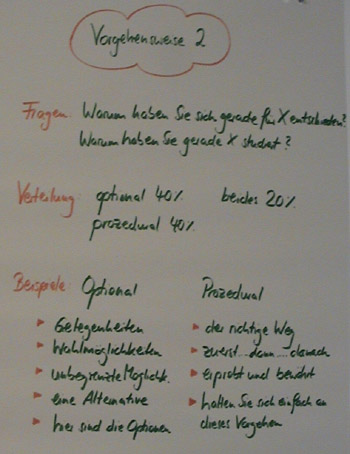 Vorgehensweise 2
Fragen: Warum haben Sie sich gerade für X entschieden?
Warum haben Sie gerade X studiert?
Verteilung: optional 40% beides 20%
prozedural 40%
Beispiele: Optional Prozedural
Gelegenheiten
Wahlmöglichkeiten
unbegrenzte Möglichk.
eine Alternative
hier sind die Optionen
der richtige Weg
zuerst...dann....danach
erprobt und bewährt
halten Sie sich einfach an
dieses Vorgehen